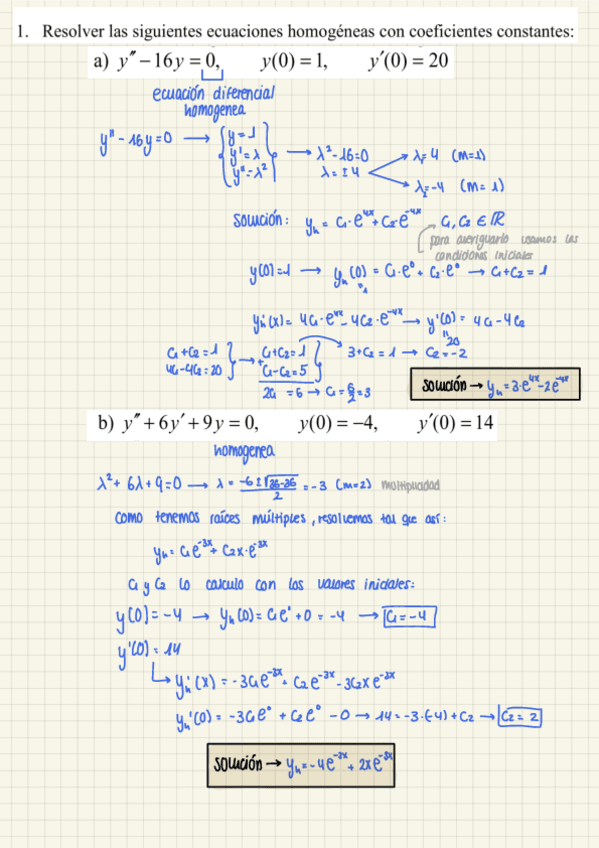 1. Resolver las siguientes ecuaciones homogéneas con coeficientes constantes:
a) y″ − 16y = 0, y(0) = 1, y′(0) = 20
ecuación diferencial
homogenea
y" - 16y = 0 → { y = 1
y' = λ
y" = λ² } → λ² - 16 = 0
λ = ± 4
λ₁ = 4 (m=1)
λ₂ = -4 (m=1)
Solución: yₕ = C₁·e⁴ˣ + C₂·e⁻⁴ˣ C₁, C₂ ∈ ℝ
para averiguarlo usamos las
condiciones iniciales
y(0) = 1 → yₕ(0) = C₁·e⁰ + C₂·e⁰ → C₁ + C₂ = 1
" 1
yₕ'(x) = 4C₁·e⁴ˣ - 4C₂·e⁻⁴ˣ → y'(0) = 4C₁ - 4C₂
" 20
C₁ + C₂ = 1
4C₁ - 4C₂ = 20 } → + C₁ + C₂ = 1
C₁ - C₂ = 5 }
3 + C₂ = 1 → C₂ = -2
2C₁ = 6 → C₁ = 6/2 = 3
Solución → yₕ = 3·e⁴ˣ - 2e⁻⁴ˣ
b) y″ + 6y′ + 9y = 0, y(0) = −4, y′(0) = 14
homogenea
λ² + 6λ + 9 = 0 → λ = (-6 ± √(36-36))/2 = -3 (m=2) multiplicidad
Como tenemos raíces múltiples, resolvemos tal que así:
yₕ = C₁e⁻³ˣ + C₂x·e⁻³ˣ
C₁ y C₂ lo calculo con los valores iniciales:
y(0) = -4 → yₕ(0) = C₁e⁰ + 0 = -4 → C₁ = -4
y'(0) = 14
yₕ'(x) = -3C₁e⁻³ˣ + C₂e⁻³ˣ - 3C₂xe⁻³ˣ
yₕ'(0) = -3C₁e⁰ + C₂e⁰ - 0 → 14 = -3·(-4) + C₂ → C₂ = 2
Solución → yₕ = -4e⁻³ˣ + 2xe⁻³ˣ